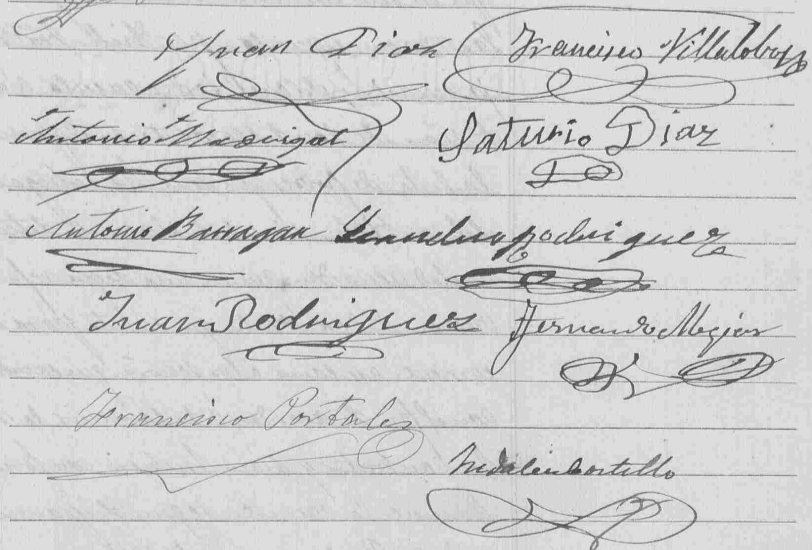 Juan Diaz Francisco Villalobos
Antonio Madrigal Saturio Diaz
Antonio Barragan Leandro Rodriguez
Juan Rodriguez Fernando Megias
Francisco Portales
Castillo